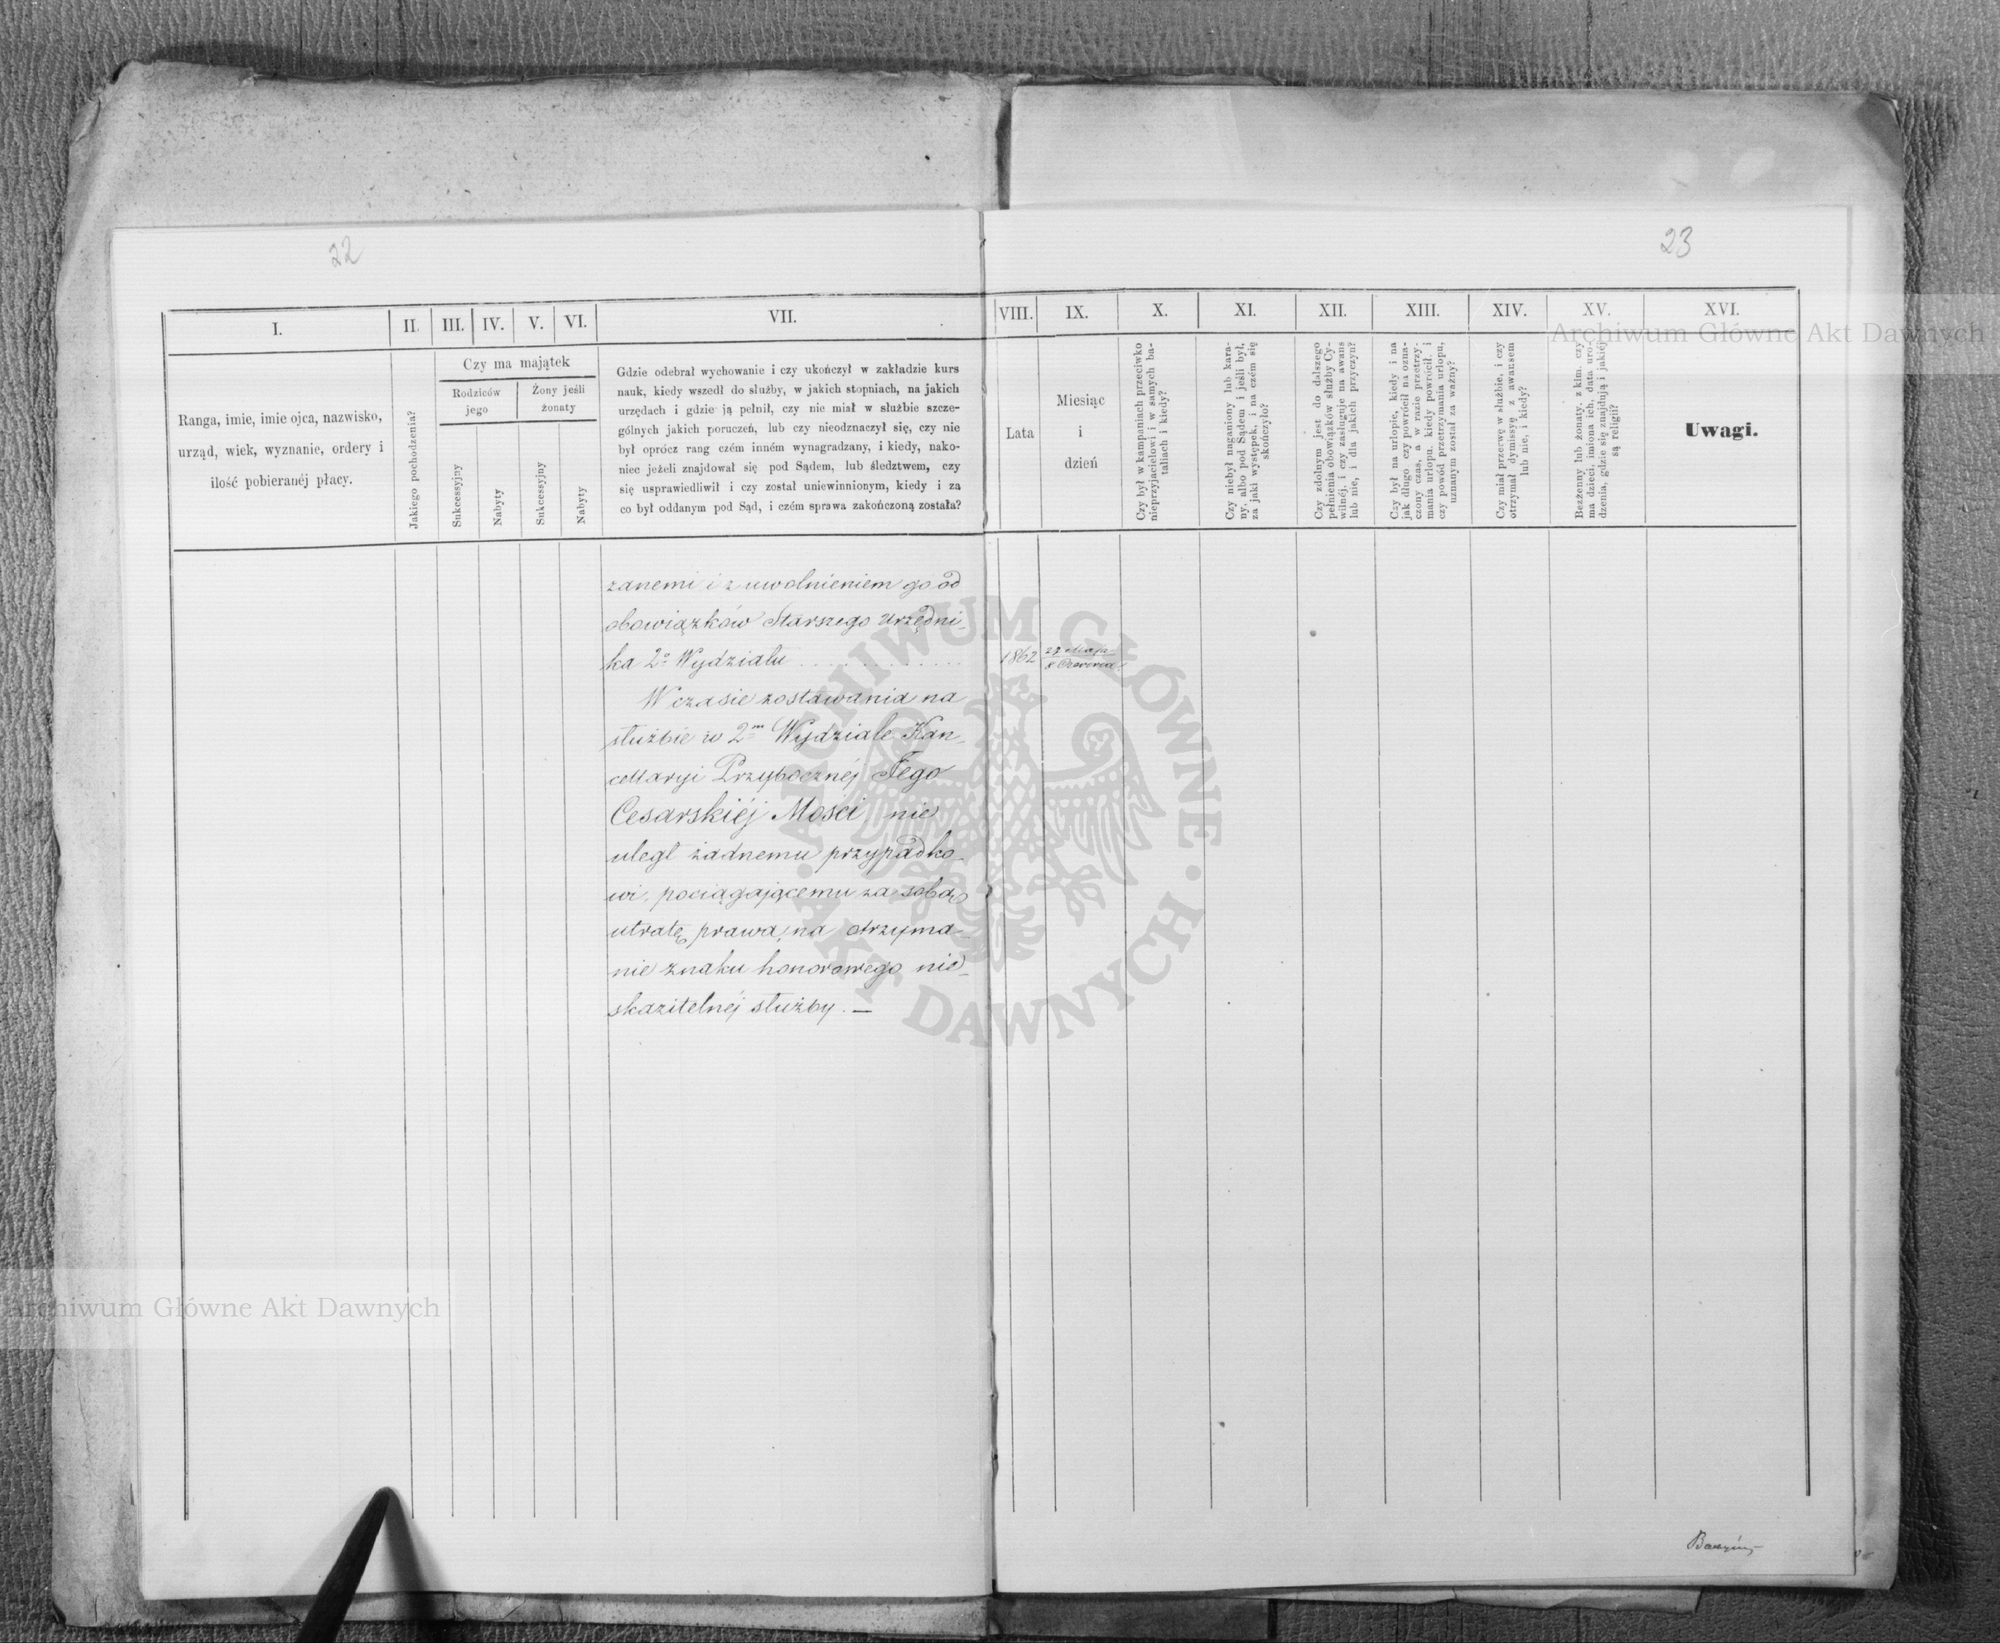 22
23
I.
II.
III.
IV.
V.
VI.
VII.
VIII.
IX.
X.
XI.
XII.
XIII.
XIV.
XV.
XVI.
Ranga, imie, imie ojca, nazwisko,
urząd, wiek, wyznanie, ordery i
ilość pobieranéj płacy.
Jakiego pochodzenia?
Czy ma majątek
Rodziców
jego
Żony jeśli
żonaty
Sukcessyjny
Nabyty
Sukcessyjny
Nabyty
Gdzie odebrał wychowanie i czy ukończył w zakładzie kurs
nauk, kiedy wszedł do służby, w jakich stopniach, na jakich
urzędach i gdzie ją pełnił, czy nie miał w służbie szcze-
gólnych jakich poruczeń, lub czy nieodznaczył się, czy nie
był oprócz rang czém inném wynagradzany, i kiedy, nako-
niec jeżeli znajdował się pod Sądem, lub śledztwem, czy
się usprawiedliwił i czy został uniewinnionym, kiedy i za
co był oddanym pod Sąd, i czém sprawa zakończoną została?
Lata
Miesiąc
i
dzień
Czy był w kampaniach przeciwko
nieprzyjacielowi i w samych ba-
taliach i kiedy?
Czy niebył naganiony lub kara-
ny, albo pod Sądem i jeśli był,
za jaki występek, i na czém się
skończyło?
Czy zdolnym jest do dalszego
pełnienia obowiązków służby Cy-
wilnéj, i czy zasługuje na awans
lub nie, i dla jakich przyczyn?
Czy był na urlopie, kiedy i na
jak długo czy powrócił na ozna-
czony czas, a w razie przetrzy-
mania urlopu, kiedy powrócił, i
czy powód przetrzymania urlopu,
uznanym został za ważny?
Czy miał przerwę w służbie, i czy
otrzymał dymissyę z awansem
lub nie, i kiedy?
Bezżenny lub żonaty, z kim, czy
ma dzieci, imiona ich, data uro-
dzenia, gdzie się znajdują i jakiéj
są religii?
Uwagi.
zanemi i z uwolnieniem go od
obowiązków Starszego Urzędni-
ka 2º Wydziału . . . . . . . . . . . .
1862
27 Maja
8 Czerwca
W czasie zostawania na
służbie w 2m Wydziale Kan-
cellaryi Przybocznéj Jego
Cesarskiéj Mości, nie
uległ żadnemu przypadko-
wi, pociągającemu za sobą
utratę prawa, na otrzyma-
nie znaku honorowego nie-
skazitelnéj służby. —
Archiwum Główne Akt Dawnych
Archiwum Główne Akt Dawnych
ARCHIWUM GŁÓWNE · AKT DAWNYCH ·